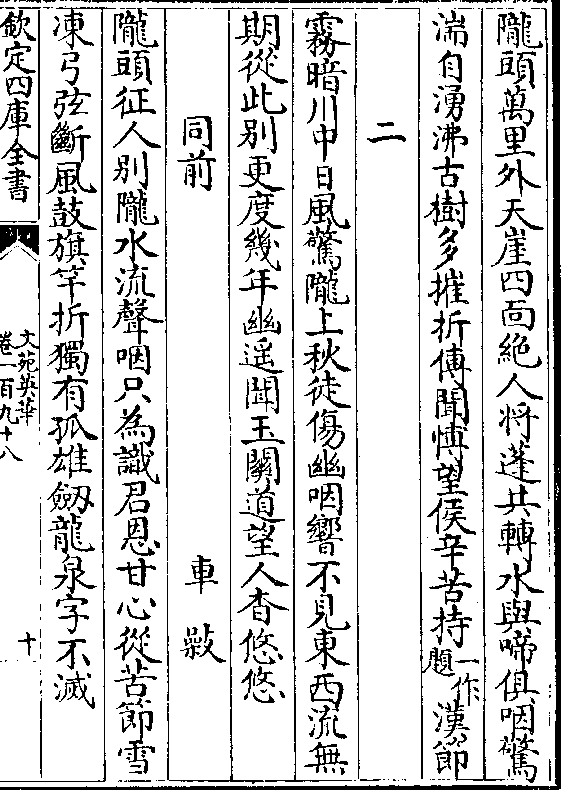 隴頭萬里外天崖四面絶人将蓬共轉水與啼俱咽驚
湍自湧沸古樹多摧折傅聞愽望侯辛苦持一作題漢節
二
霧暗川中日風驚隴上秋徒傷幽咽響不見東西流無
期從此别更度幾年幽遥聞玉闗道望人杳悠悠
同前 車㪣
隴頭征人别隴水流聲咽只為識君恩甘心從苦節雪
凍弓弦斷風鼓旗竿折獨有孤雄劔龍泉字不滅
欽定四庫全書
文苑英華
卷一百九十八
十